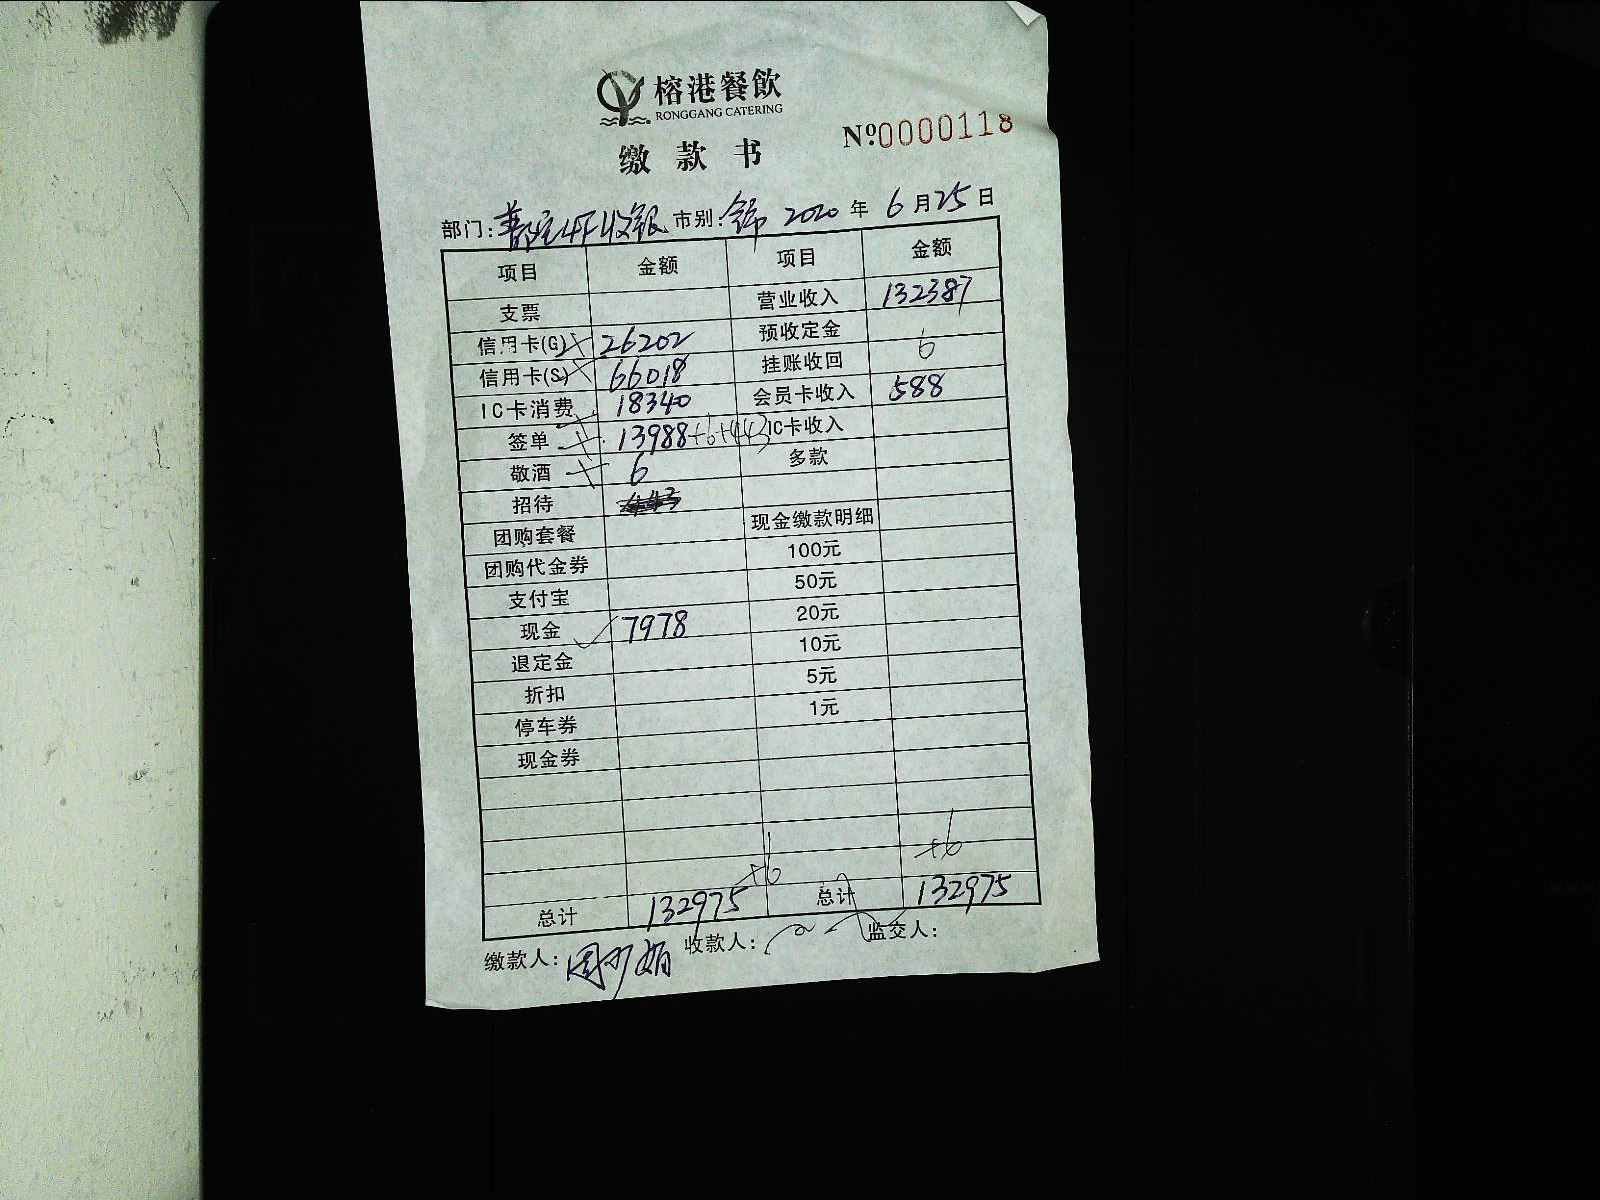 榕港餐飲
RONGGANG CATERING
缴款书
Nº.0000118
部门: 4F收银 市别: 2020 年 6 月 25 日
项目 金额 项目 金额
支票 营业收入 132387
信用卡(G) 26202 预收定金
信用卡(S) 66018 挂账收回 6
IC卡消费 18340 会员卡收入 588
签单 13988+6+443 IC卡收入
敬酒 6 多款
招待
团购套餐 现金缴款明细
团购代金券 100元
支付宝 50元
现金 7978 20元
退定金 10元
折扣 5元
停车券 1元
现金券
+6 +6
总计 132975 总计 132975
缴款人: 收款人: 监交人: